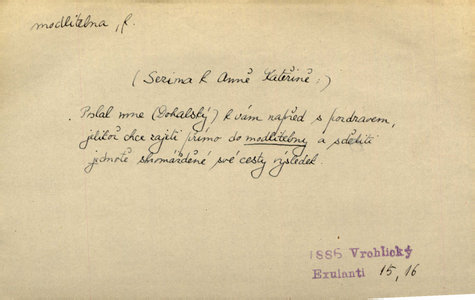 modlitebna, f.
(Sezima k Anně Kateřině:)
Poslal mne (Dohalský) k vám napřed s pozdravem,
jelikož chce zajíti přímo do modlitebny a sděliti
jednotě shromážděné své cesty výsledek.
1886 Vrchlický
Exulanti 15, 16